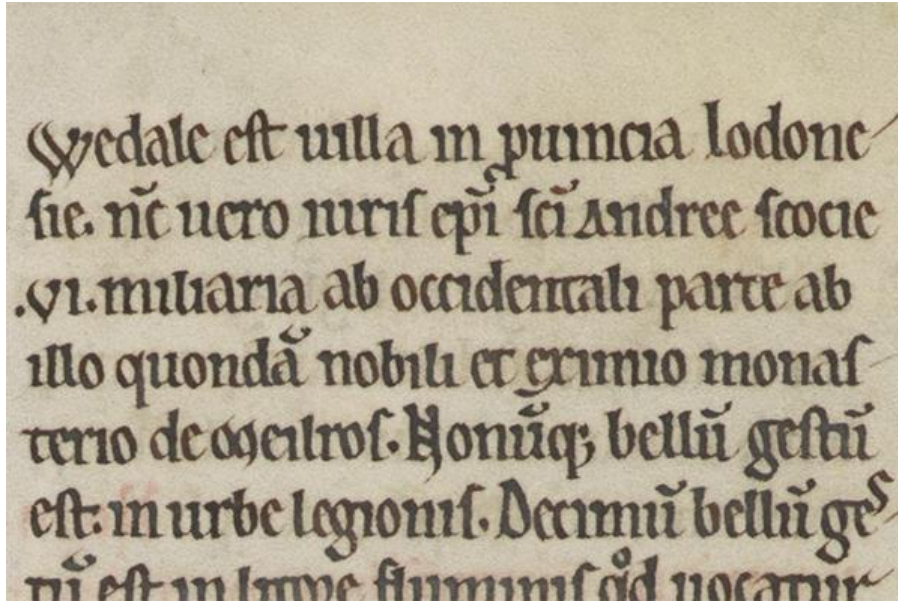 Wedale est uilla in ꝓuincia lodone
sie. nc̄ uero iuris epi̅ sci̅ Andree scocie
.vi. miliaria ab occidentali parte ab
illo quondā nobili et eximio monas
terio de Meilros. Nonūq; bellū gestū
est. in urbe legionis. Decimū bellū ges
tū est in litore fluminis qͦd uocatur